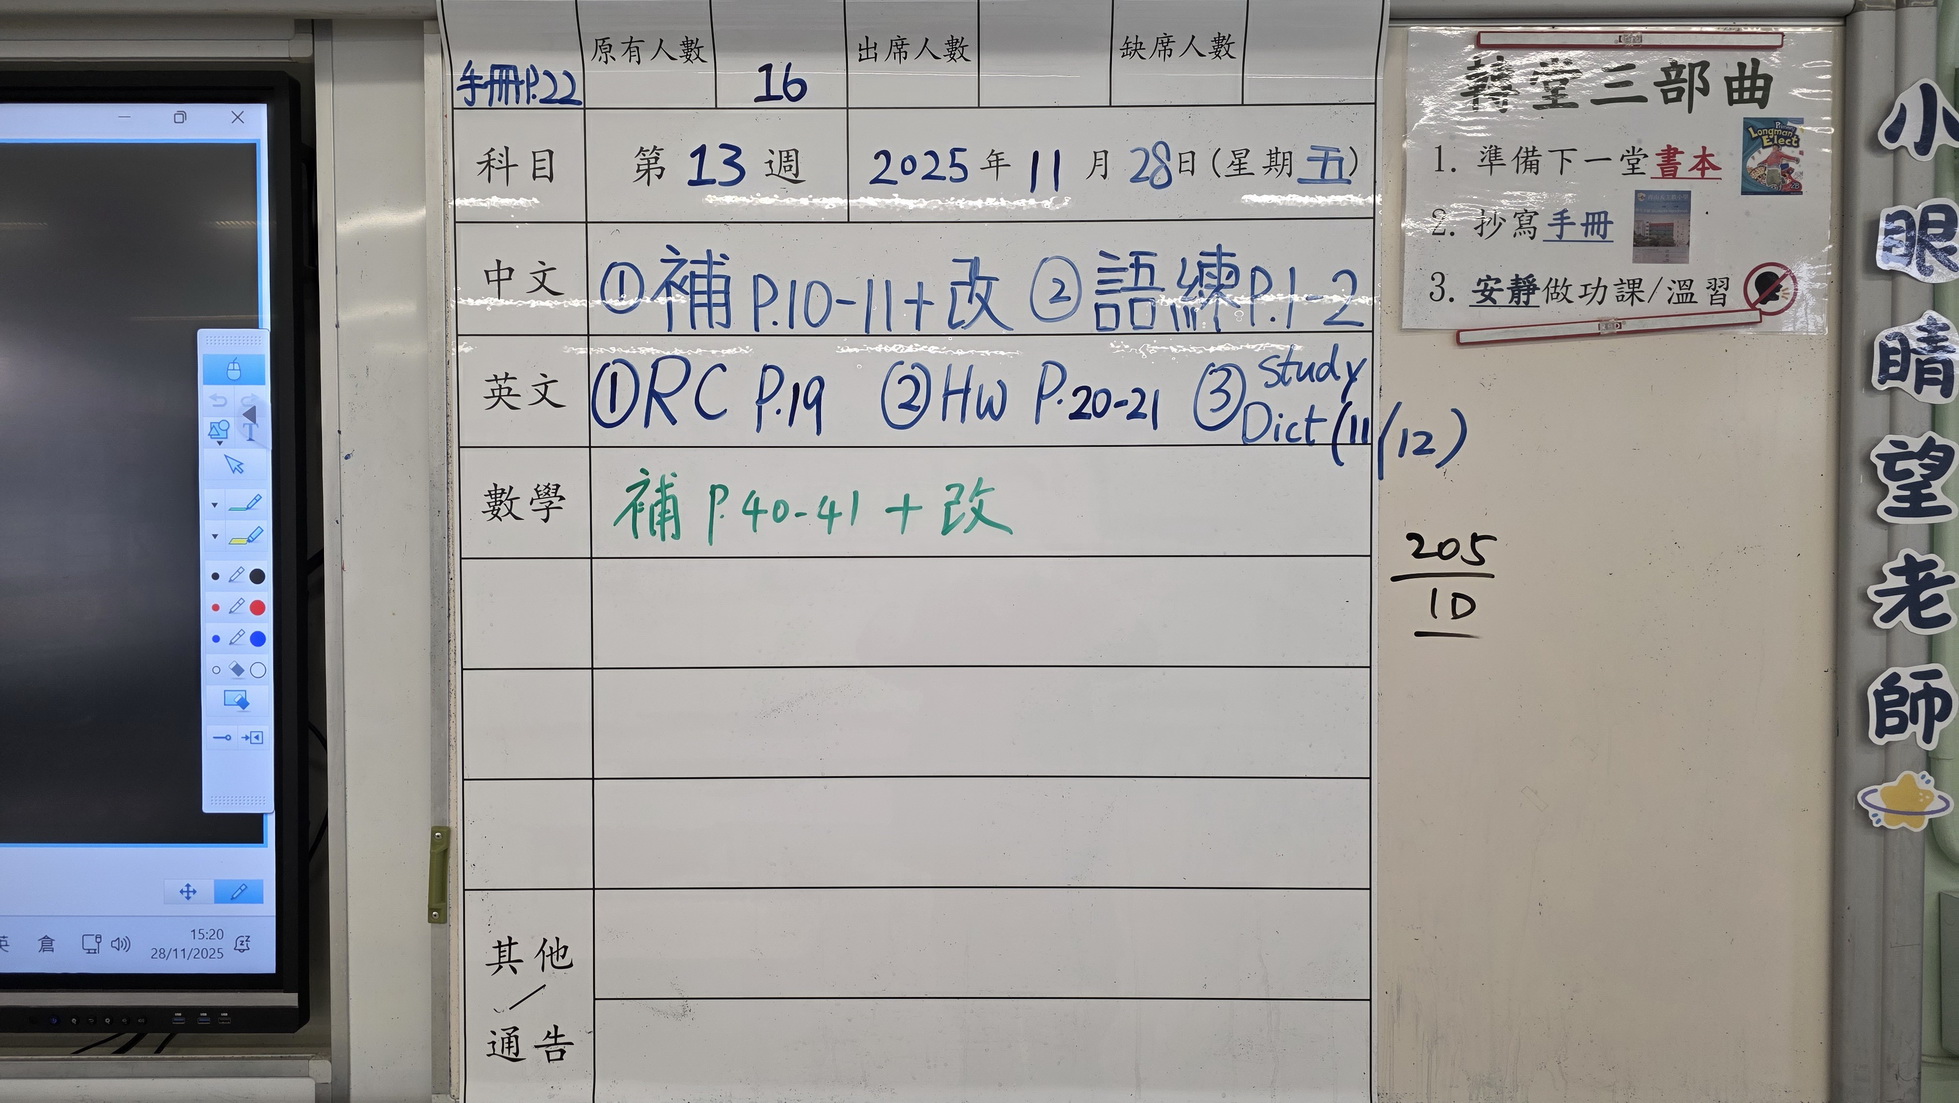 手冊P.22
原有人數 16 出席人數 缺席人數
科目 第 13 週 2025 年 11 月 28 日 (星期 五)
中文 ①補 P.10-11+改 ②語練P.1-2
英文 ①RC P.19 ②HW P.20-21 ③study Dict (11/12)
數學 補 P.40-41 + 改
其他
／
通告
轉堂三部曲
1. 準備下一堂書本
Longman
Elect
2. 抄寫手冊
3. 安靜做功課/溫習
205
1D
小眼睛望老師
T
英 倉
15:20
28/11/2025